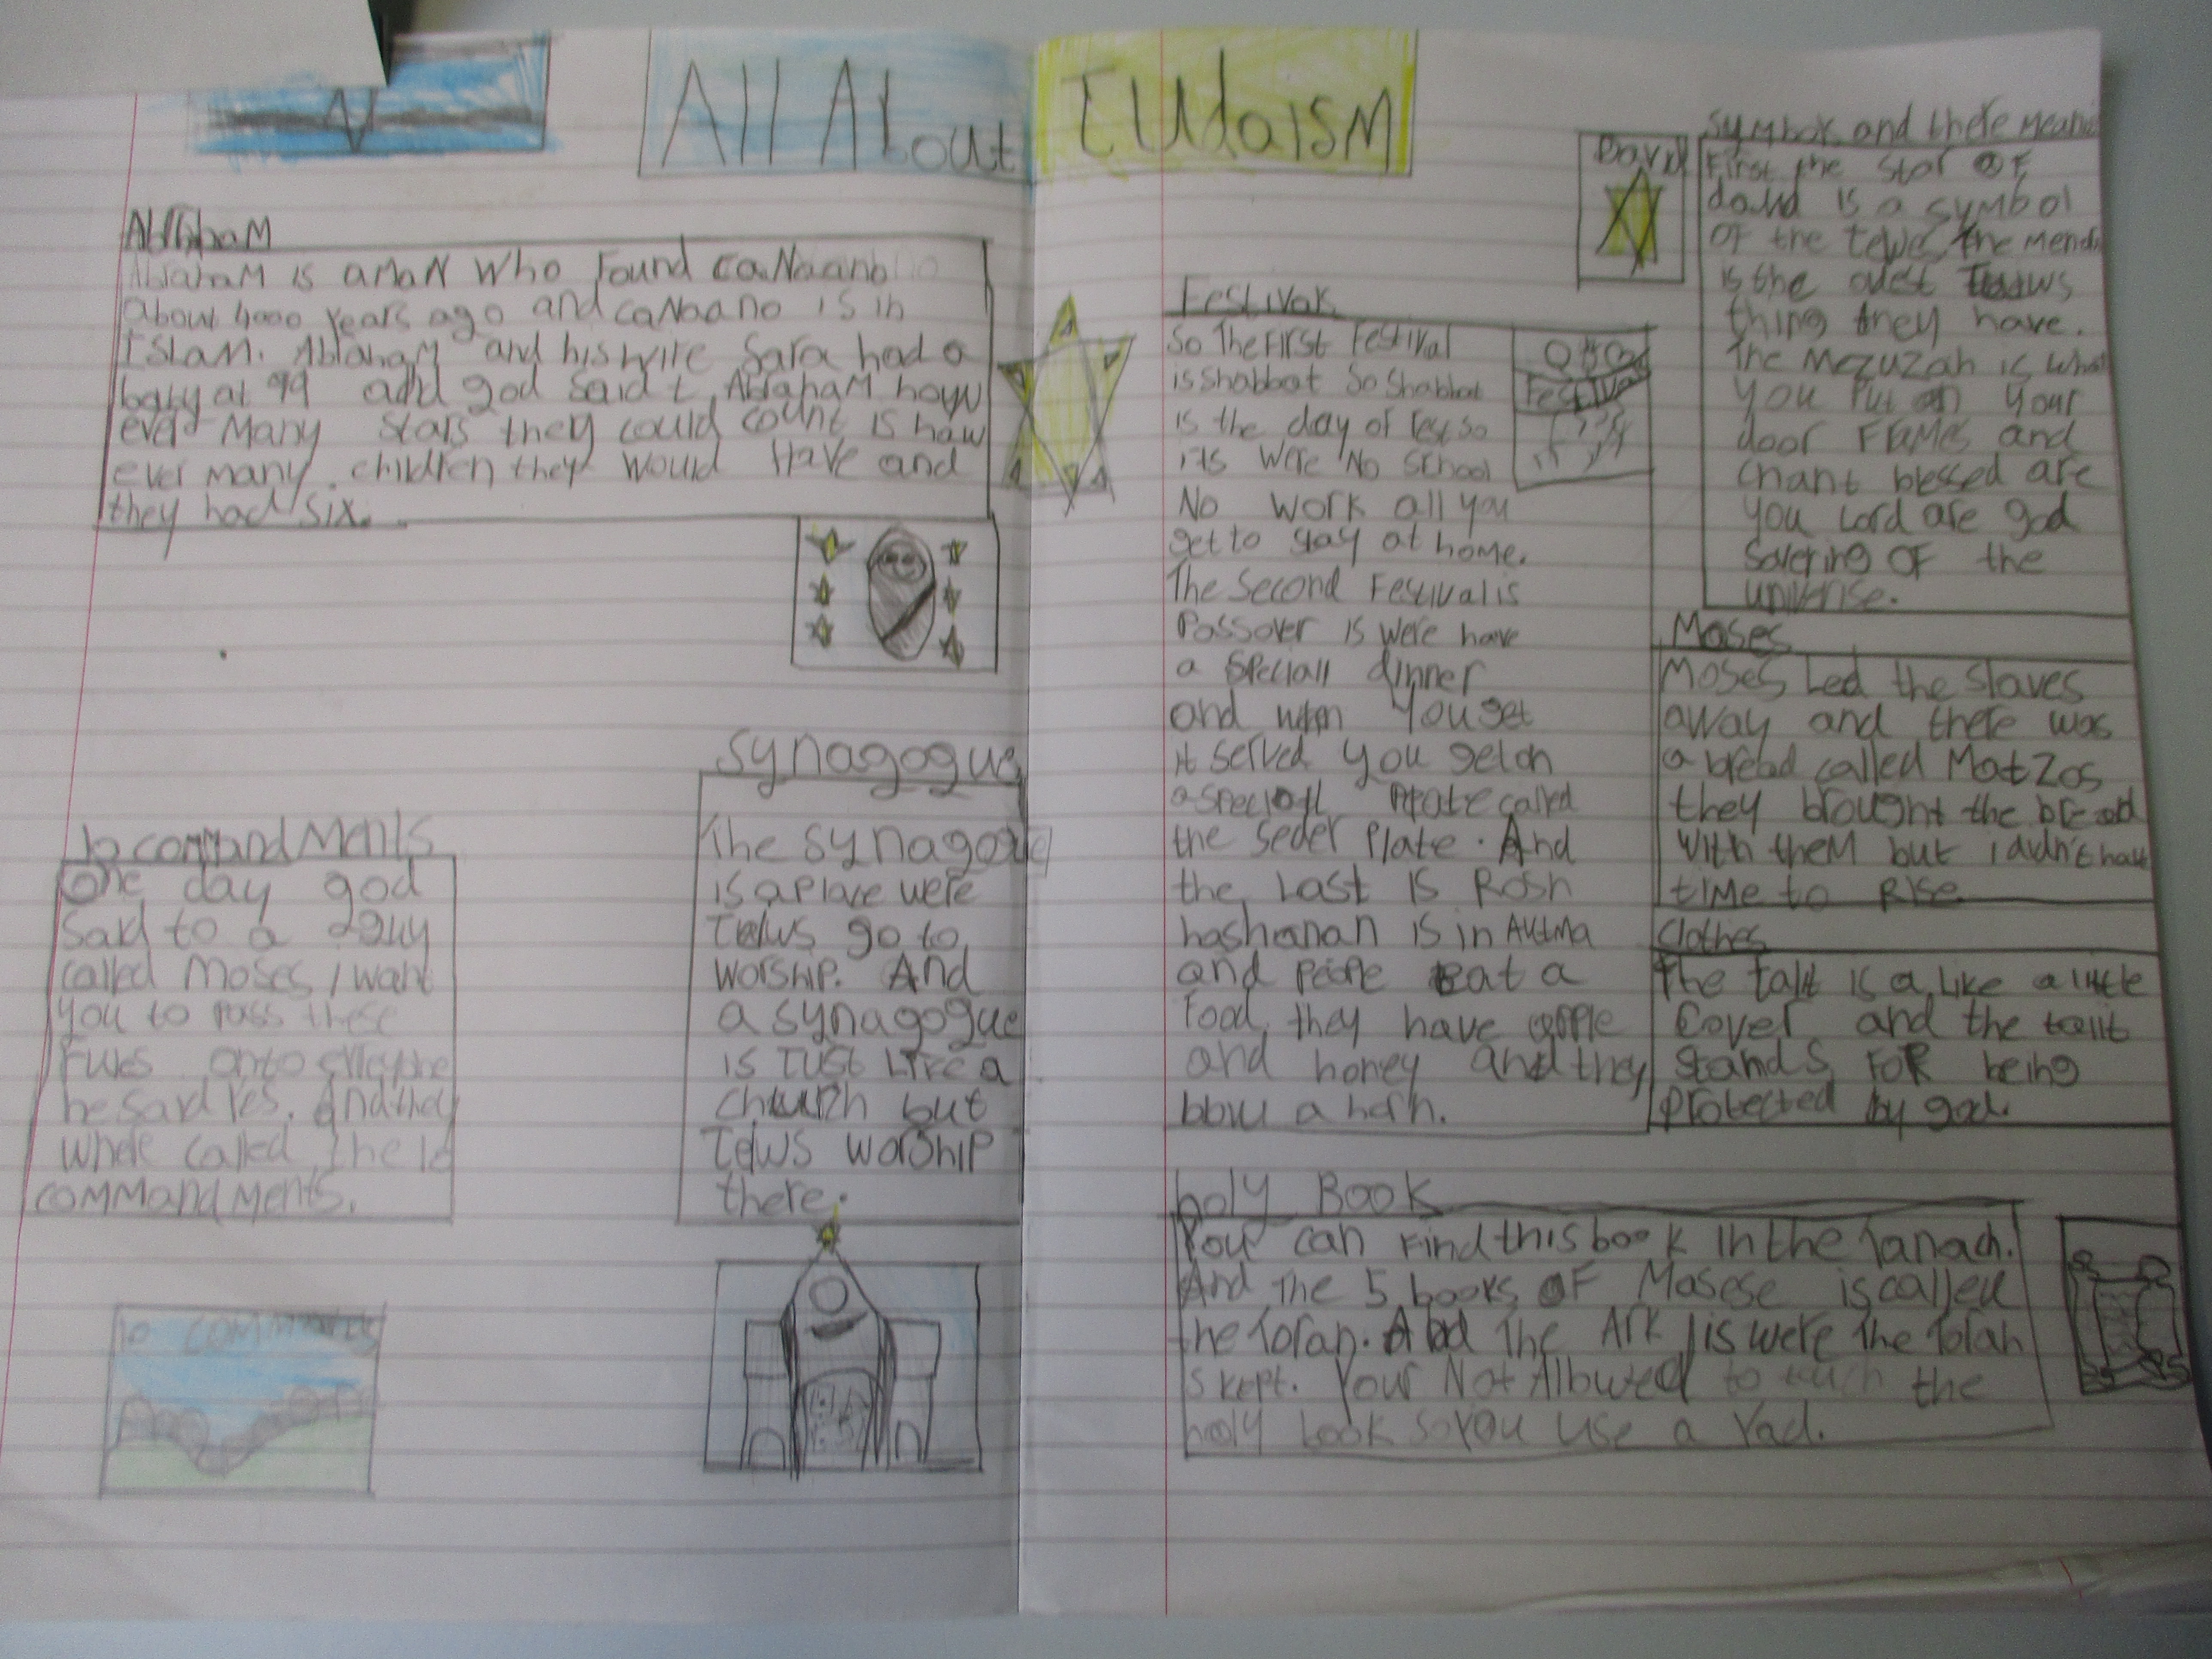 All About Iudaism
Abraham
Abraham is a man who found canaano
about 4000 years ago and canaano is in
Islam. Abraham and his wife Sara had a
baby at 99 and god said t Abraham hoyw
ever many stars they could count is how
ever many children they would have and
they had six.
10 commandments
One day god
said to a guy
called Moses I want
you to pass these
onto
he said yes. And they
where called the 10
commandments.
10 commands
Synagogue
The synagogue
is a place were
go to
worship. And
a synagogue
is Iust Like a
church but
Iews worship
there.
Festivals
So The First Festival
is Shabbat So Shabbat
is the day of rest so
its were No School
No work all you
get to stay at home.
The Second Festival is
Passover is were have
a speciall dinner
and when You get
it served you get on
a speciall plate called
the Seder Plate. And
the Last is Rosh
hashanah is in
and people eat a
food they have apple
and honey and they
blow a horn.
Festival
David
Symbols and there
First the Star OF
david is a symbol
OF the the
is the
thing they have.
The Mezuzah is what
you Put on your
door Frames and
chant blessed are
you Lord are god
Sovering OF the
universe.
Moses
Moses Led the slaves
away and there was
a bread called Matzos
they brought the bread
with them but I didn't have
time to Rise.
Clothes
The talit is a Like a little
Cover and the talit
stands FOR being
Protected by god.
holy Book
You can Find this book in the Tanach.
And The 5 books OF Mosese is called
the Torah. And The Ark is were The Torah
is kept. Your Not Allowed to touch the
holy book so you use a Yad.